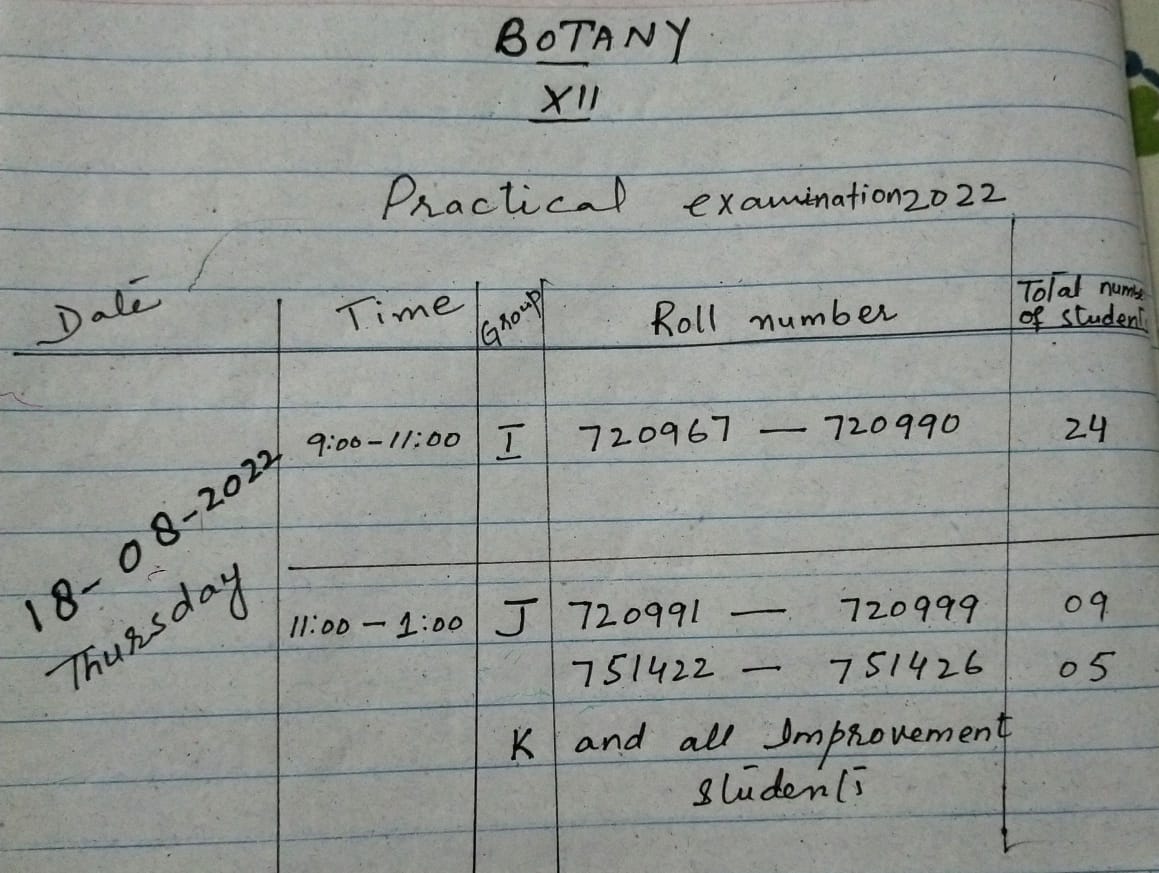 BOTANY
XII
Practical examination 2022
Date Time Group Roll number Total number of students
9:00 - 11:00 I 720967 — 720990 24
18-08-2022
Thursday
11:00 - 1:00 J 720991 — 720999 09
751422 — 751426 05
K and all Improvement
students